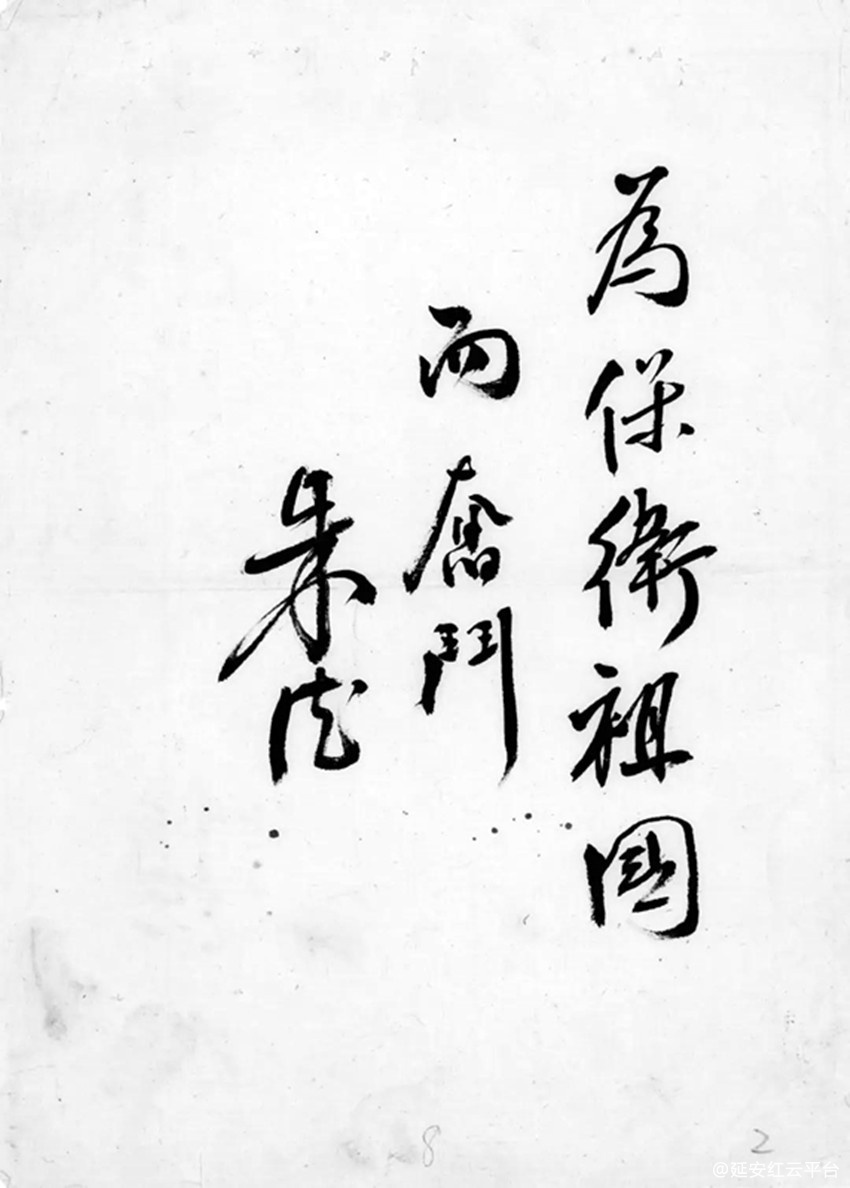 為保衛祖國
而奮鬥
朱德
8
2
@延安红云平台